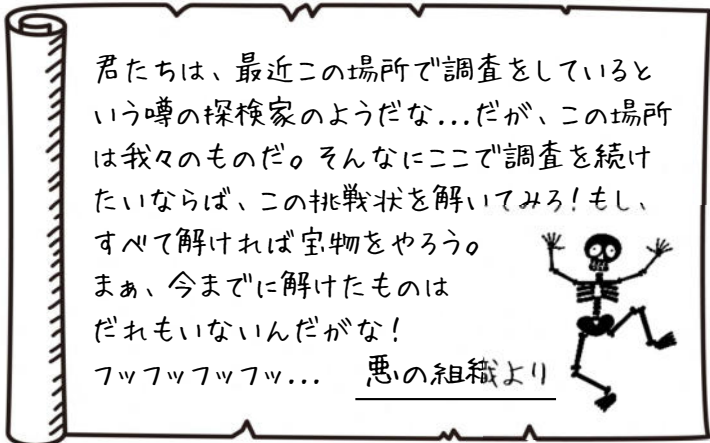 君たちは、最近この場所で調査をしていると
いう噂の探検家のようだな...だが、この場所
は我々のものだ。そんなにここで調査を続け
たいならば、この挑戦状を解いてみろ！もし、
すべて解ければ宝物をやろう。
まぁ、今までに解けたものは
だれもいないんだがな！
フッフッフッフッ... 悪の組織より